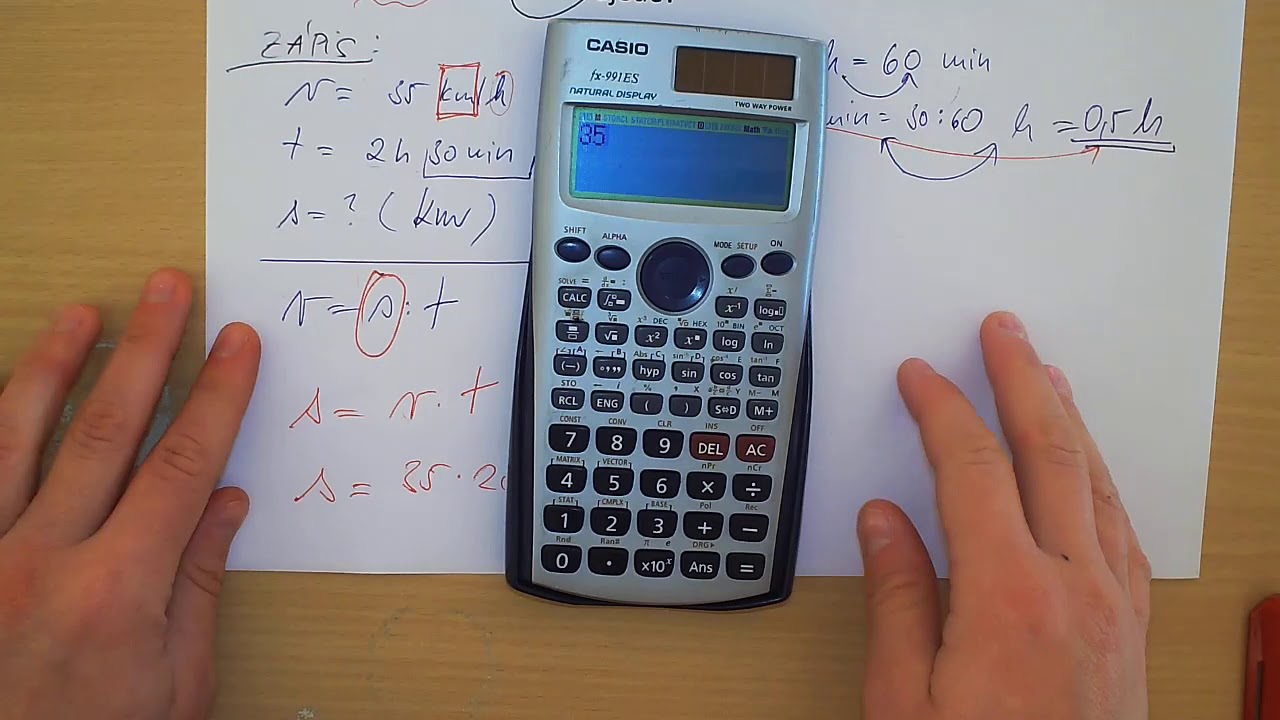 ZÁPIS:
v = 35 km/h
t = 2h 30min
s = ? (km)
v = s : t
s = v · t
s = 35 · 2
h = 60 min
min = 30 : 60 h = 0,5 h
CASIO
fx-991ES
NATURAL DISPLAY
TWO WAY POWER
35
SHIFT ALPHA MODE SETUP ON
SOLVE =
CALC x⁻¹ log
x³ DEC HEX 10ˣ BIN eˣ OCT
x² log ln
A B Abs C sin⁻¹ D cos⁻¹ E tan⁻¹ F
(−) hyp sin cos tan
STO X Y M− M
RCL ENG ( ) S⇔D M+
CONST CONV CLR INS OFF
7 8 9 DEL AC
MATRIX VECTOR nPr nCr
4 5 6 × ÷
STAT CMPLX BASE Pol Rec
1 2 3 + −
Rnd Ran# π e DRG▶
0 · ×10ˣ Ans =